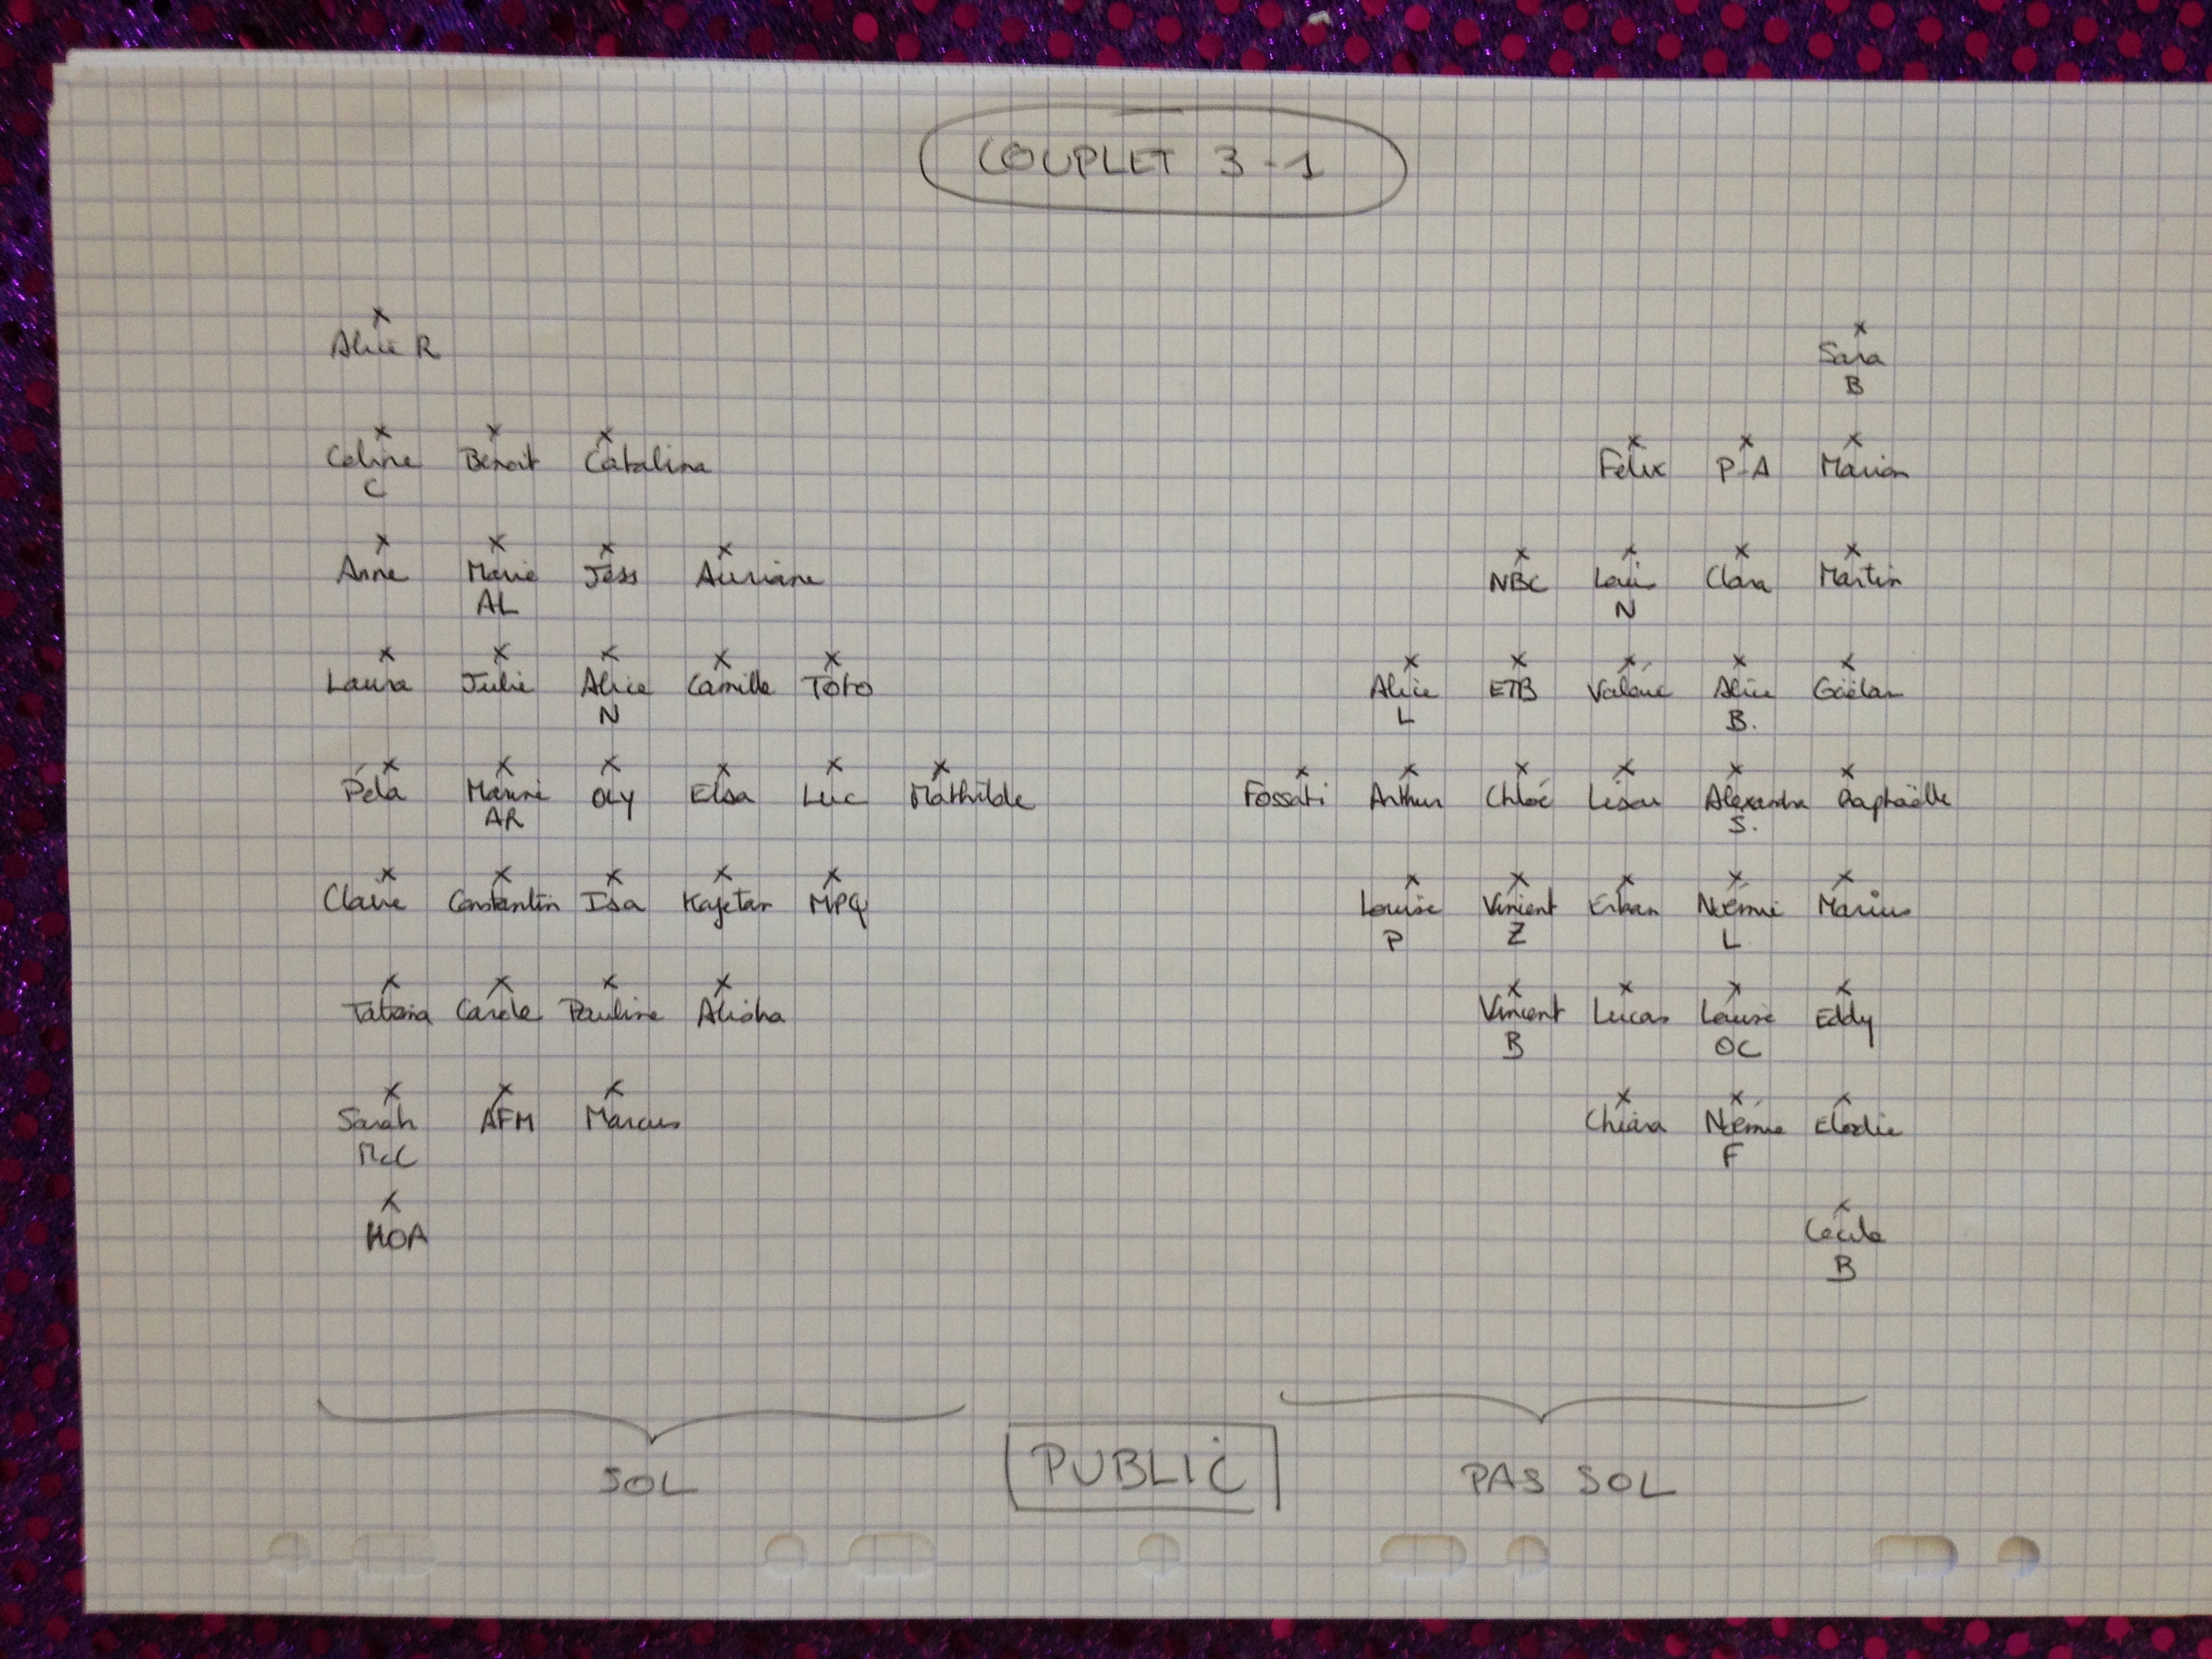 COUPLET 3-1
Alice R
Sara
B
Celine Benoit Catalina Felix P-A Marion
C
Anne Marie Jess Auriane NBC Clara Martin
AL N
Laura Julie Alice Camille Toto Alice ETB Valérie Alice Gaëlan
N L B.
Péla Marine Oly Elsa Luc Mathilde Fossati Arthur Chloé Lison Alexandra Raphaëlle
AR S.
Claire Constantin Isa Kajetan MPQ Louise Vincent Erhan Noémie Marius
P Z L
Tatiana Carole Pauline Alisha Vincent Lucas Eddy
B OC
Sarah AFM Marcus Chiara Noémie Elodie
McC F
HOA Cécile
B
SOL PUBLIC PAS SOL